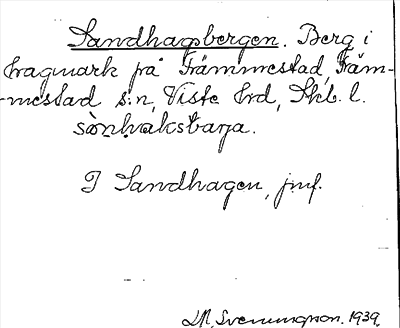 Sandhagsbergen. Berg i
hagmark på Främmestad, Främ-
-mestad s:n, Viste hrd, Skb. l.
sànhaksbærja.
I Sandhagen, jmf.
J.M. Svenungson. 1939.